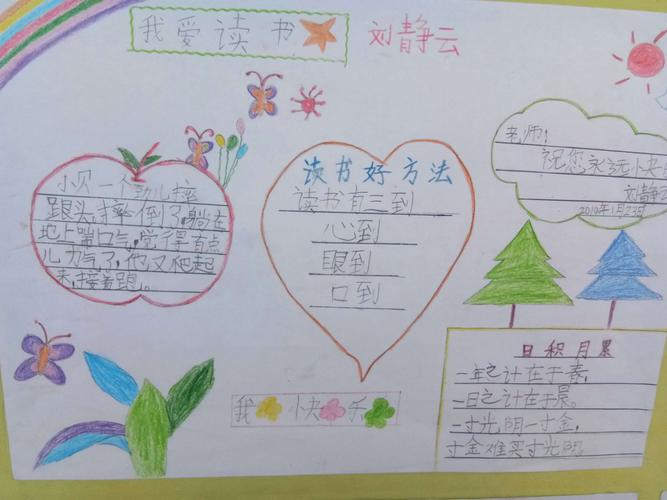 我爱读书
刘静云
老师:
祝您永远快
刘静
2019年1月23日
小贝一个劲儿摔
跟头,摔倒了,躺在
地上喘口气,觉得有点
儿力气了,他又爬起
来,接着跟。
读书好方法
读书有三到
心到
眼到
口到
我 快 乐
日积月累
一年之计在于春,
一日之计在于晨。
一寸光阴一寸金,
寸金难买寸光阴。